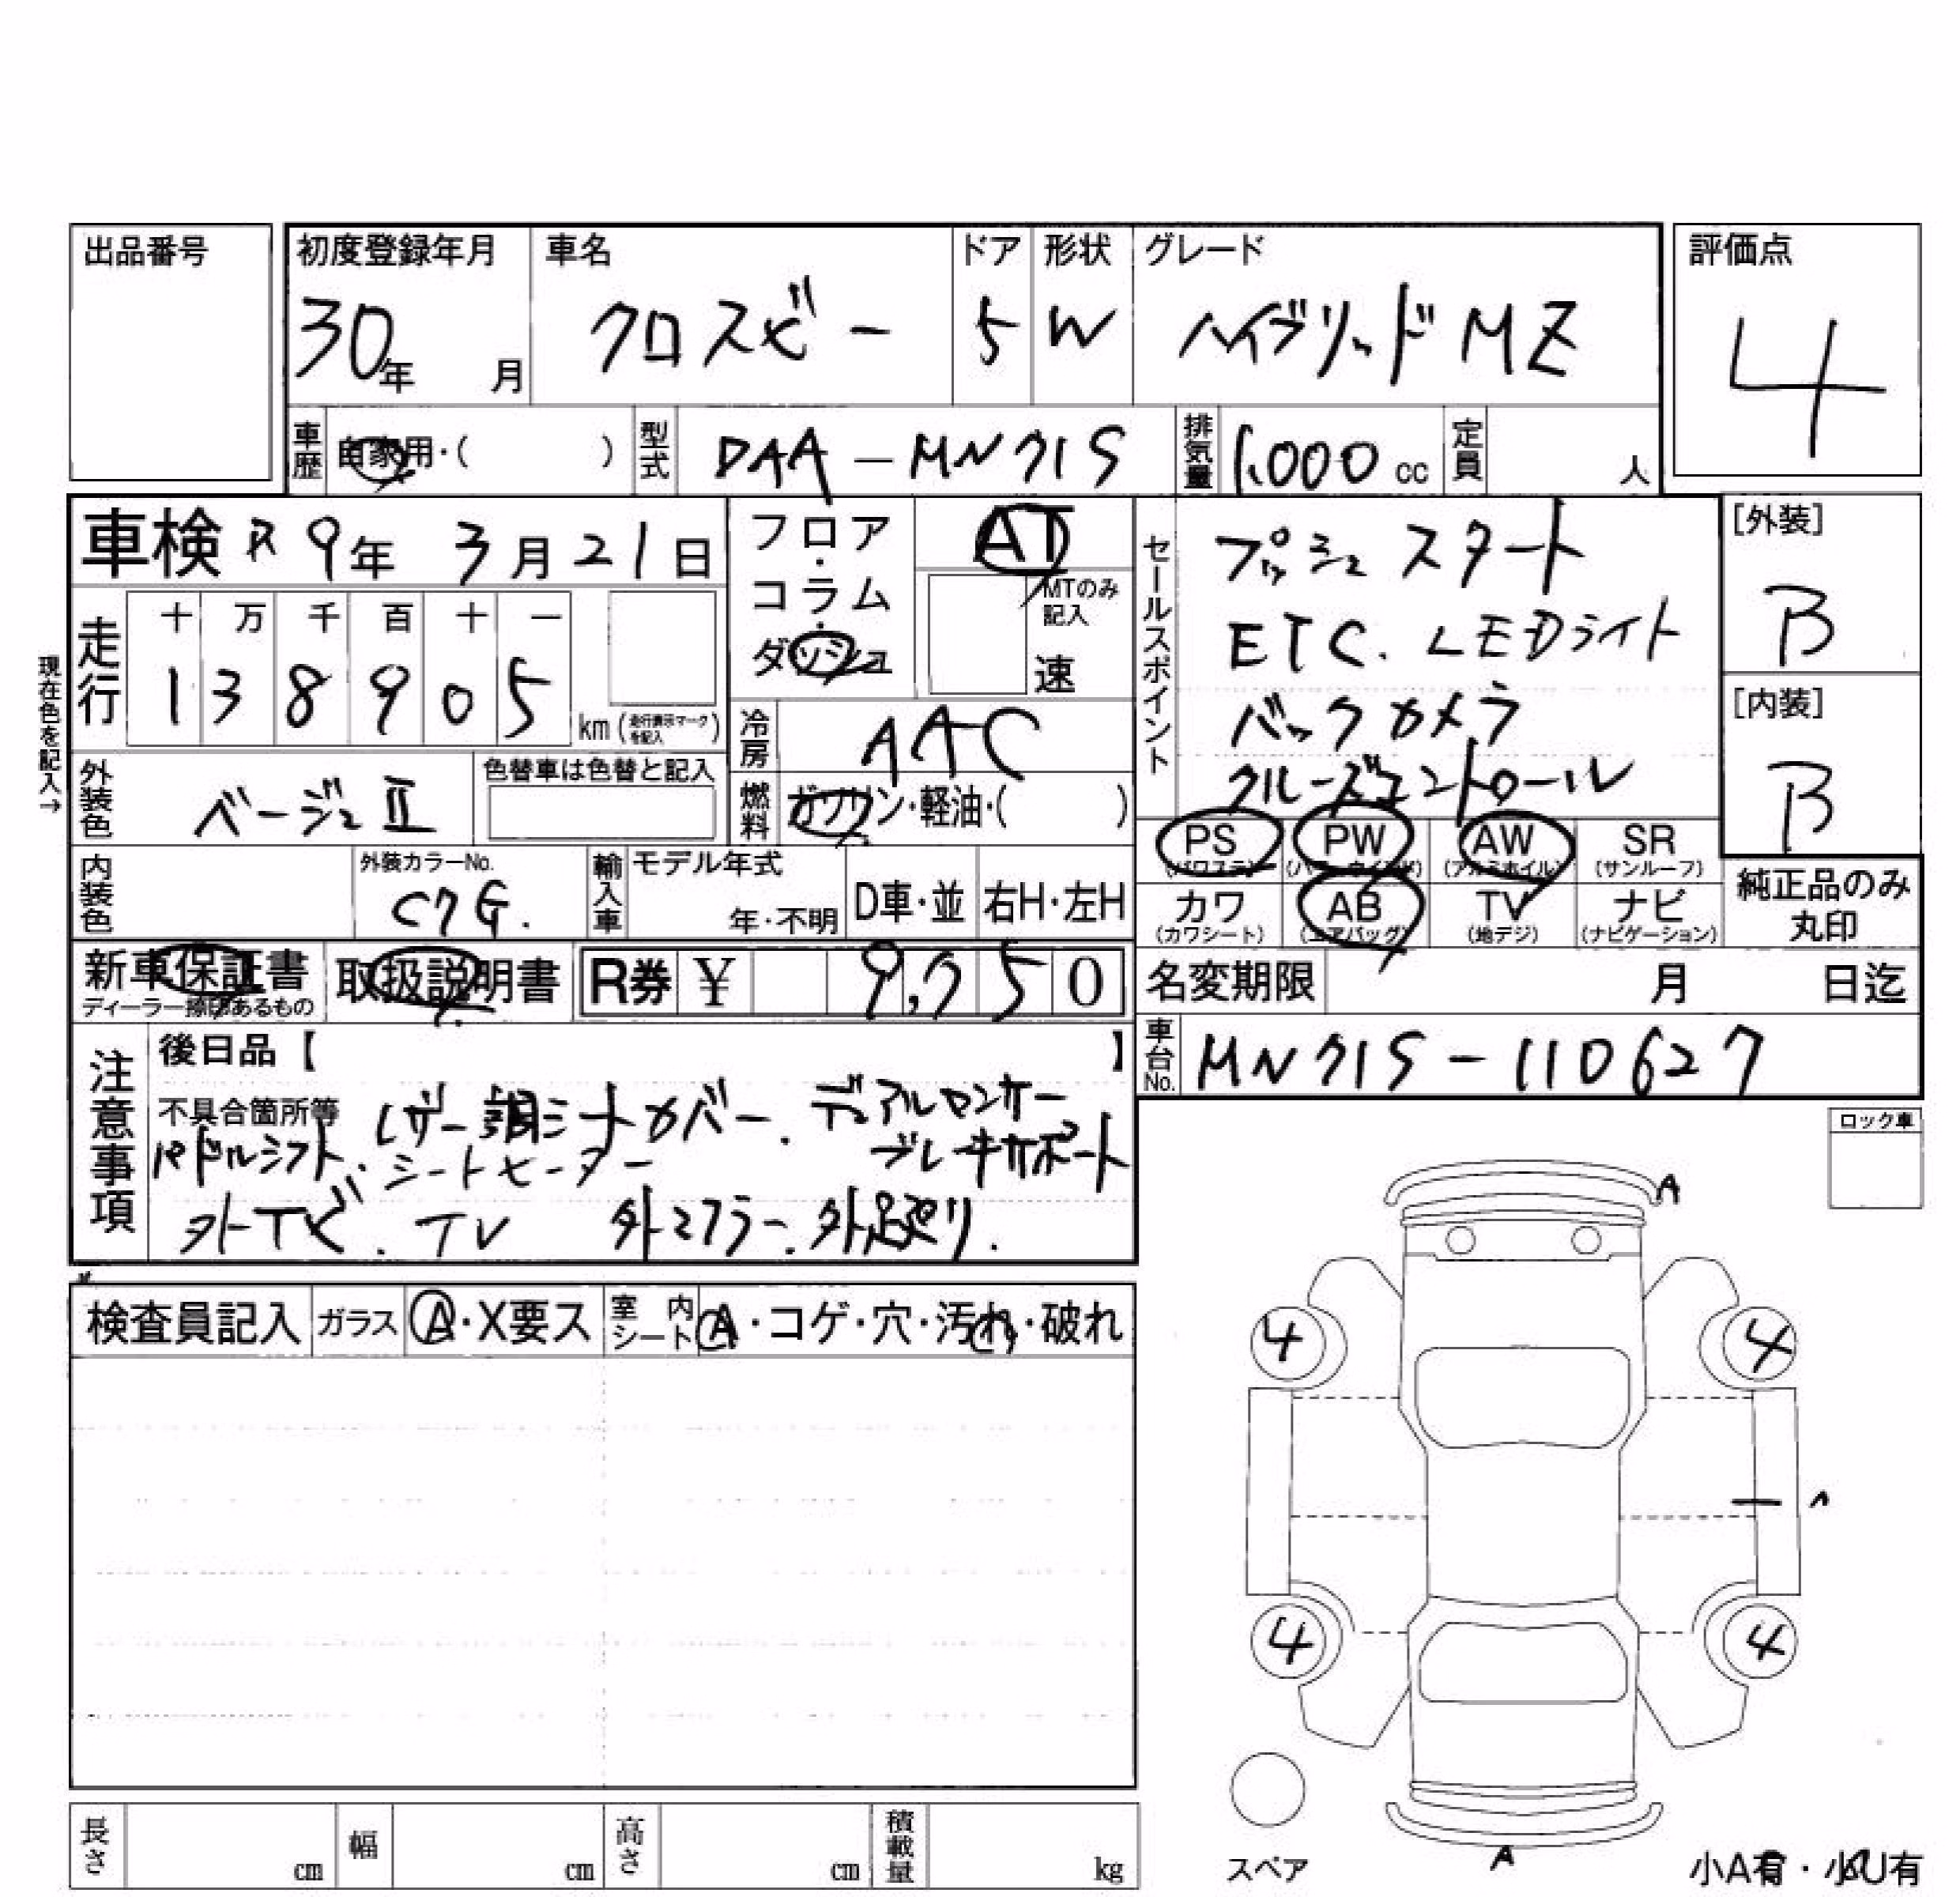 出品番号
初度登録年月 車名 ドア 形状 グレード 評価点
30年 月 クロスビー 5 W ハイブリッド MZ 4
車歴 自家用・( ) 型式 DAA-MN71S 排気量 1,000 cc 定員 人
車検 R9年 3月21日
フロア・コラム・ダッシュ
AT
MTのみ記入
速
走行
十 万 千 百 十 一
1 3 8 9 0 5 km (走行表示マークを記入)
現在色を記入→
冷房 AAC
燃料 ガソリン・軽油・( )
外装色 ベージュⅡ 色替車は色替と記入
内装色 外装カラーNo. C7G. 輸入車 モデル年式 年・不明 D車・並 右H・左H
セールスポイント
プッシュスタート
ETC. LEDライト
バックカメラ
クルーズコントロール
[外装]
B
[内装]
B
PS (パワステ) PW (パワーウインド) AW (アルミホイル) SR (サンルーフ)
カワ (カワシート) AB (エアバッグ) TV (地デジ) ナビ (ナビゲーション)
純正品のみ丸印
新車保証書 取扱説明書 R券 ¥ 9,750
ディーラー捺印あるもの
名変期限 月 日迄
車台No. MN71S-110627
注意事項
後日品【 】
不具合箇所等 レザー調シートカバー. デュアルセンサー
パドルシフト. シートヒーター ブレーキサポート
外TV. TV 外マフラー. 外足廻り.
検査員記入 ガラス A・X要ス 室内シート A・コゲ・穴・汚れ・破れ
ロック車
A
4 4
4 4
A
スペア
小A有・小U有
長さ cm 幅 cm 高さ cm 積載量 kg